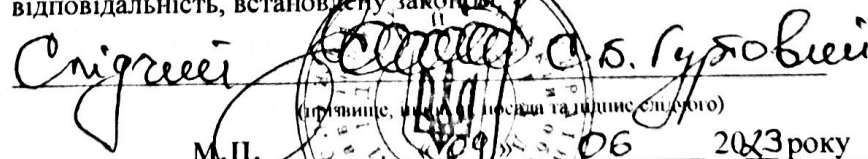 відповідальність, встановлену законом.
Слідчий С.Б. Гутовий
(прізвище, ініціали, посада та підпис слідчого)
М.П. «09» 06 2023 року